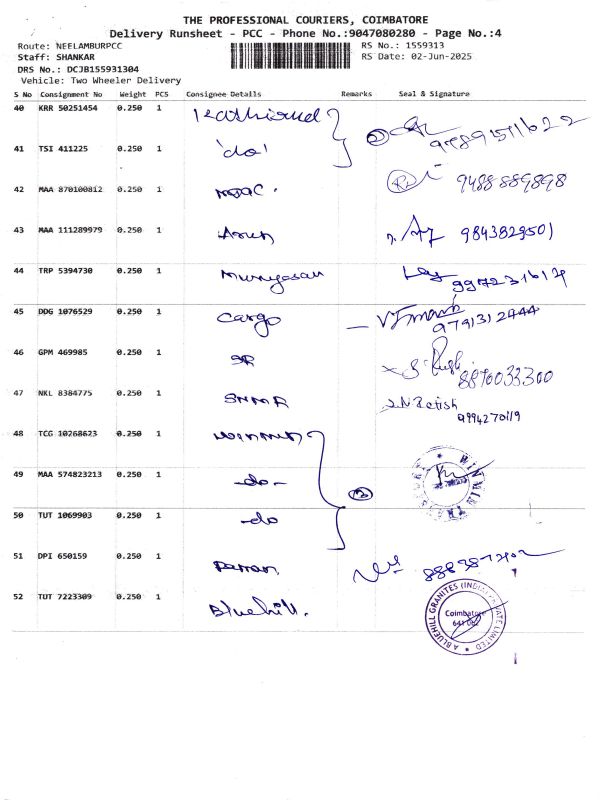 THE PROFESSIONAL COURIERS, COIMBATORE
Delivery Runsheet - PCC - Phone No.:9047080280 - Page No.:4
Route: NEELAMBURPCC RS No.: 1559313
Staff: SHANKAR RS Date: 02-Jun-2025
DRS No.: DCJB155931304
Vehicle: Two Wheeler Delivery
S No Consignment No Weight PCS Consignee Details Remarks Seal & Signature
40 KRR 50251454 0.250 1
41 TSI 411225 0.250 1 'do'
42 MAA 870100812 0.250 1 9488889898
43 MAA 111289979 0.250 1 Arun 9843829501
44 TRP 5394730 0.250 1 Murugasan
45 DDG 1076529 0.250 1 Cargo 9791312444
46 GPM 469985 0.250 1 8870033300
47 NKL 8384775 0.250 1 SNMR 9994270119
48 TCG 10268623 0.250 1
49 MAA 574823213 0.250 1 -do-
50 TUT 1069903 0.250 1 -do
51 DPI 650159 0.250 1
52 TUT 7223309 0.250 1 Bluehill.
A BLUEHILL GRANITES (INDIA) PRIVATE LIMITED
Coimbatore
641 062